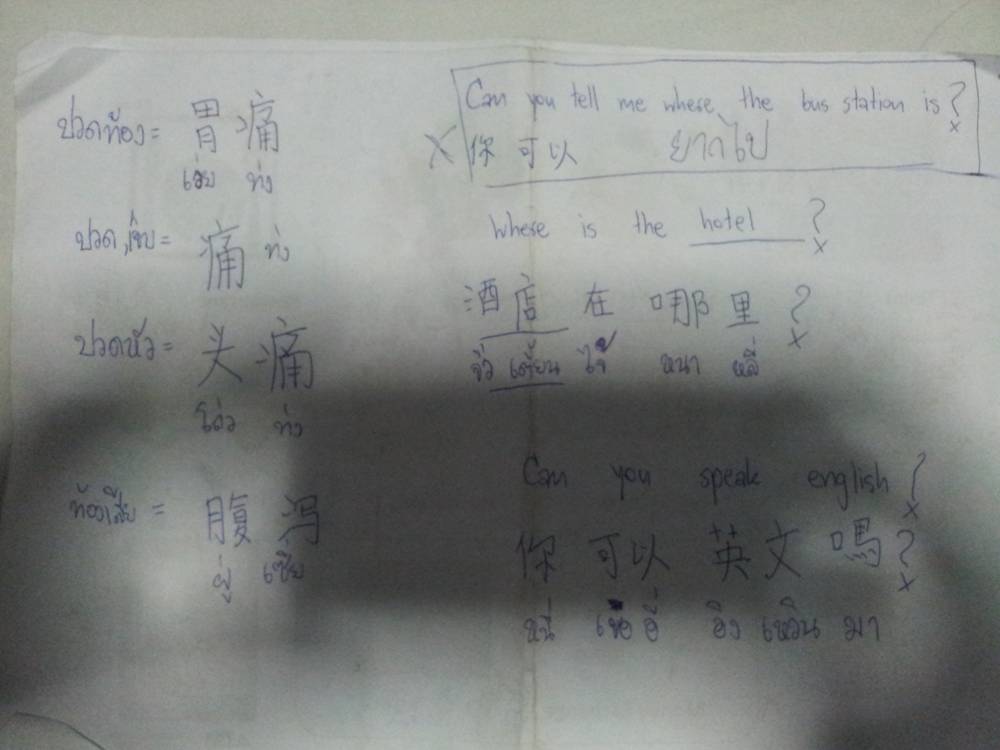 ปวดท้อง = 胃痛
เว่ย ท่ง
ปวด, เจ็บ = 痛 ท่ง
ปวดหัว = 头痛
โถ่ว ท่ง
ท้องเสีย = 腹泻
ฟู่ เซี่ย
Can you tell me where the bus station is?
X 你可以 ยากไป
Where is the hotel ?
酒店在哪里?
จิ่ว เตี้ยน ไจ้ หนา หลี่
Can you speak english?
你可以英文嗎?
หนี่ อี่ อิง เหวิน มา